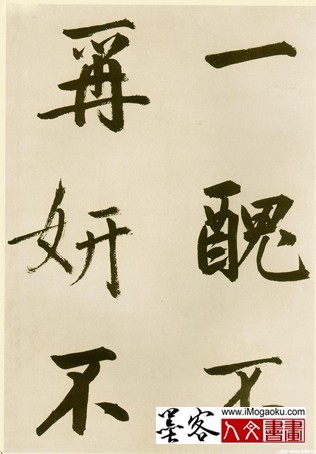 一醜不
再妍不
www.iMogaoku.com
墨客 人文書畫